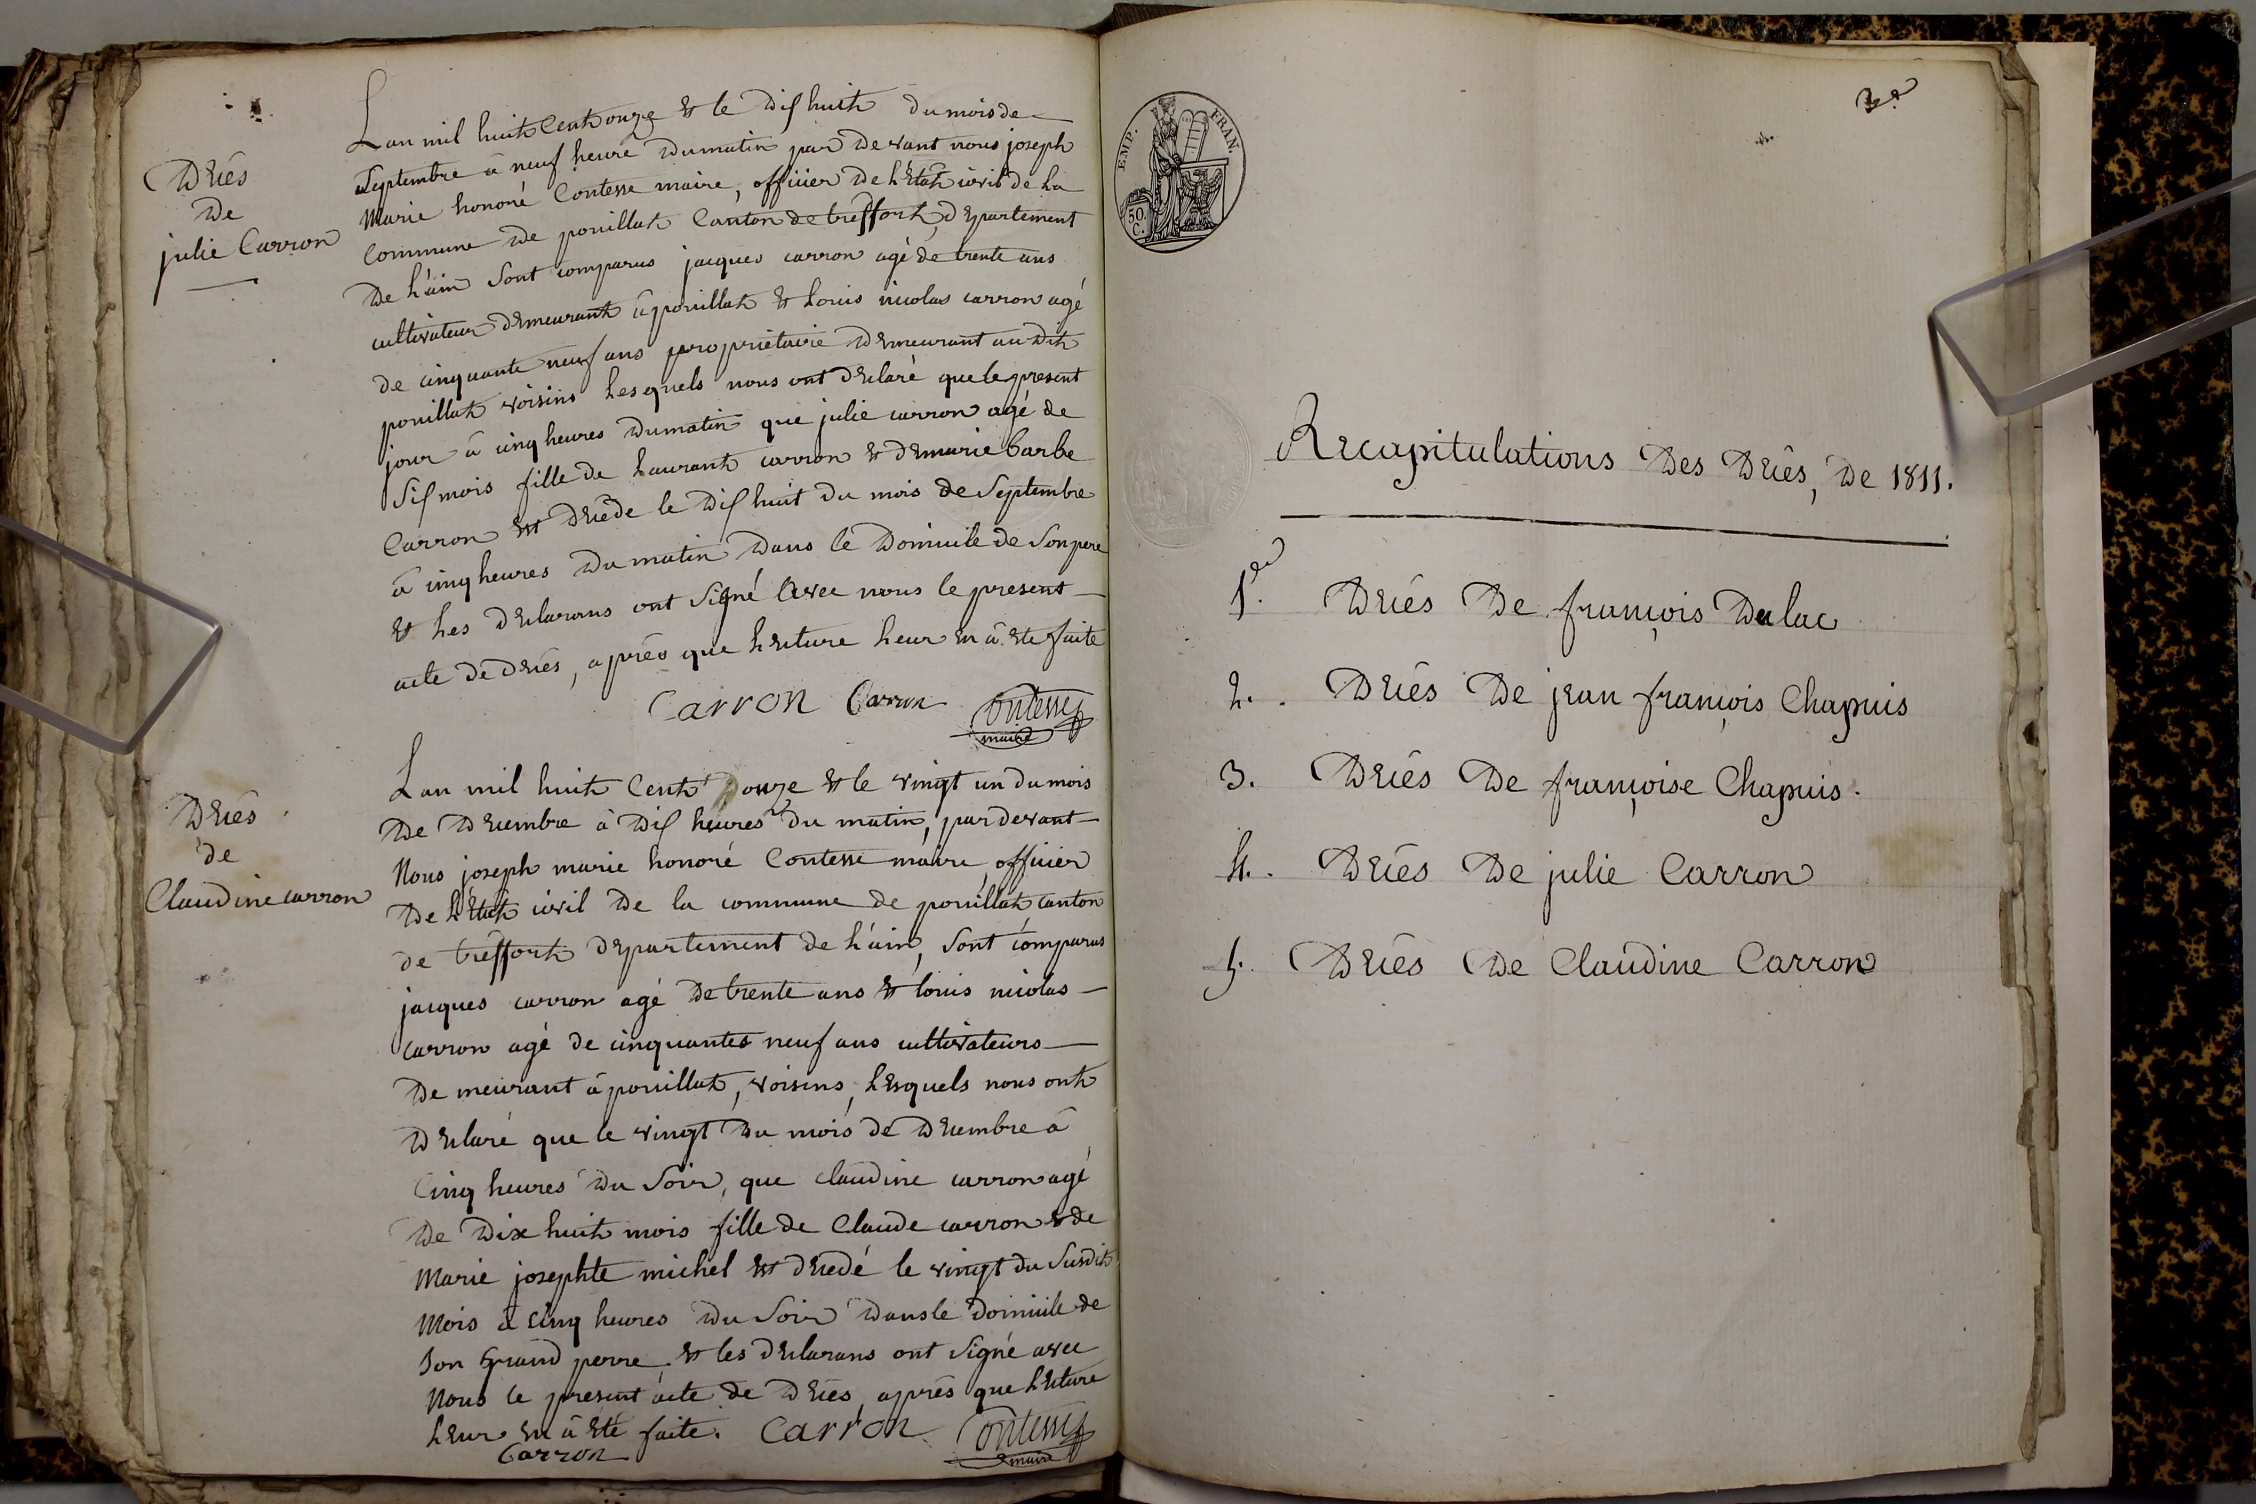 Décés
de
julie Carron
L'an mil huit Cent onze & le dis huit du mois de
Septembre à neuf heure du matin par devant nous joseph
Marie honoré Contesse maire, officier de L'Etat civil de La
Commune de pouillat Canton de treffort, département
De L'ain Sont comparus jacques carron agé de trente ans
cultivateur demeurant à pouillat & Louis nicolas carron agé
de cinquante neuf ans propriétaire demeurant au dit
pouillat voisins Lesquels nous ont déclaré que le present
jour à cinq heures du matin que julie carron agé de
Sis mois fille de Laurant carron & de marie barbe
Carron est décéde le dis huit du mois de Septembre
à cinq heures du matin dans le domicile de Son pere
& Les déclarans ont Signé Avec nous le present
acte de décés, aprés que Lecture Leur en à été faite
Carron Carron Contesse
maire
Décés
de
Claudine carron
L'an mil huit Cent onze & le vingt un du mois
De Décembre à dis heures du matin, par devant
Nous joseph marie honoré Contesse maire officier
De L'Etat civil de la commune de pouillat, canton
de treffort département de L'ain, Sont comparus
jacques carron agé de trente ans & louis nicolas
carron agé de cinquantes neuf ans cultivateurs
De meurant à pouillat, voisins, Lesquels nous ont
Déclaré que le vingt du mois de décembre à
Cinq heures du Soir, que claudine carron agé
De Dix huit mois fille de Claude carron & de
Marie josephte michel est décédé le vingt du Susdit
Mois à cinq heures du Soir dans le domicile de
Son Grand perre & les déclarans ont Signé avec
Nous le present acte de décés, aprés que Lecture
Leur en à été faite. Carron Contesse
Carron maire
EMP. FRAN.
50.
C.
Recapitulations Des Décés, De 1811.
1er. Décés De françois Dulac
2. Décés De jean françois Chapuis
3. Décés De françoise Chapuis.
4. Décés De julie Carron
5. Décés De Claudine Carron